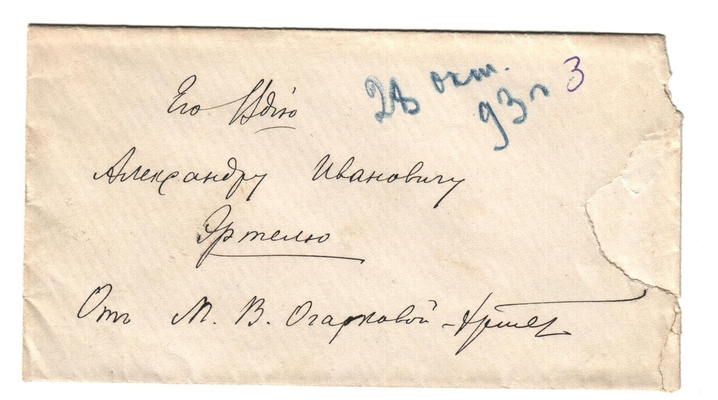 28 окт.
93 г 3
Его Вдію
Александру Ивановичу
Эртелю
Отъ М. В. Огарковой-Эртель